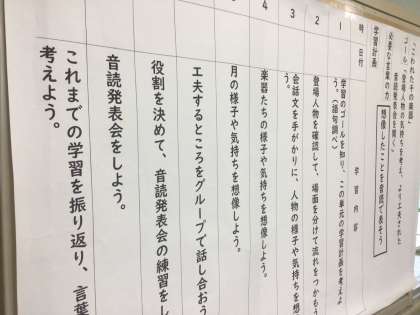 「こわれた千の楽器」
ゴール「登場人物の気持ちを考え、より工夫された
音読発表会を開く」
必要な言葉の力
想像したことを音読で表そう
学習計画
時
日
行
学習内容
1
学習のゴールを知り、この単元の学習計画を考えよ
う。(語句調べ)
2
登場人物を確認して、場面を分けて流れをつかもう
3
会話文を手がかりに、人物の様子や気持ちを想
う。
4
楽器たちの様子や気持ちを想像しよう。
月の様子や気持ちを想像しよう。
工夫するところをグループで話し合おう
役割を決めて、音読発表会の練習をし
音読発表会をしよう。
これまでの学習を振り返り、言葉
考えよう。